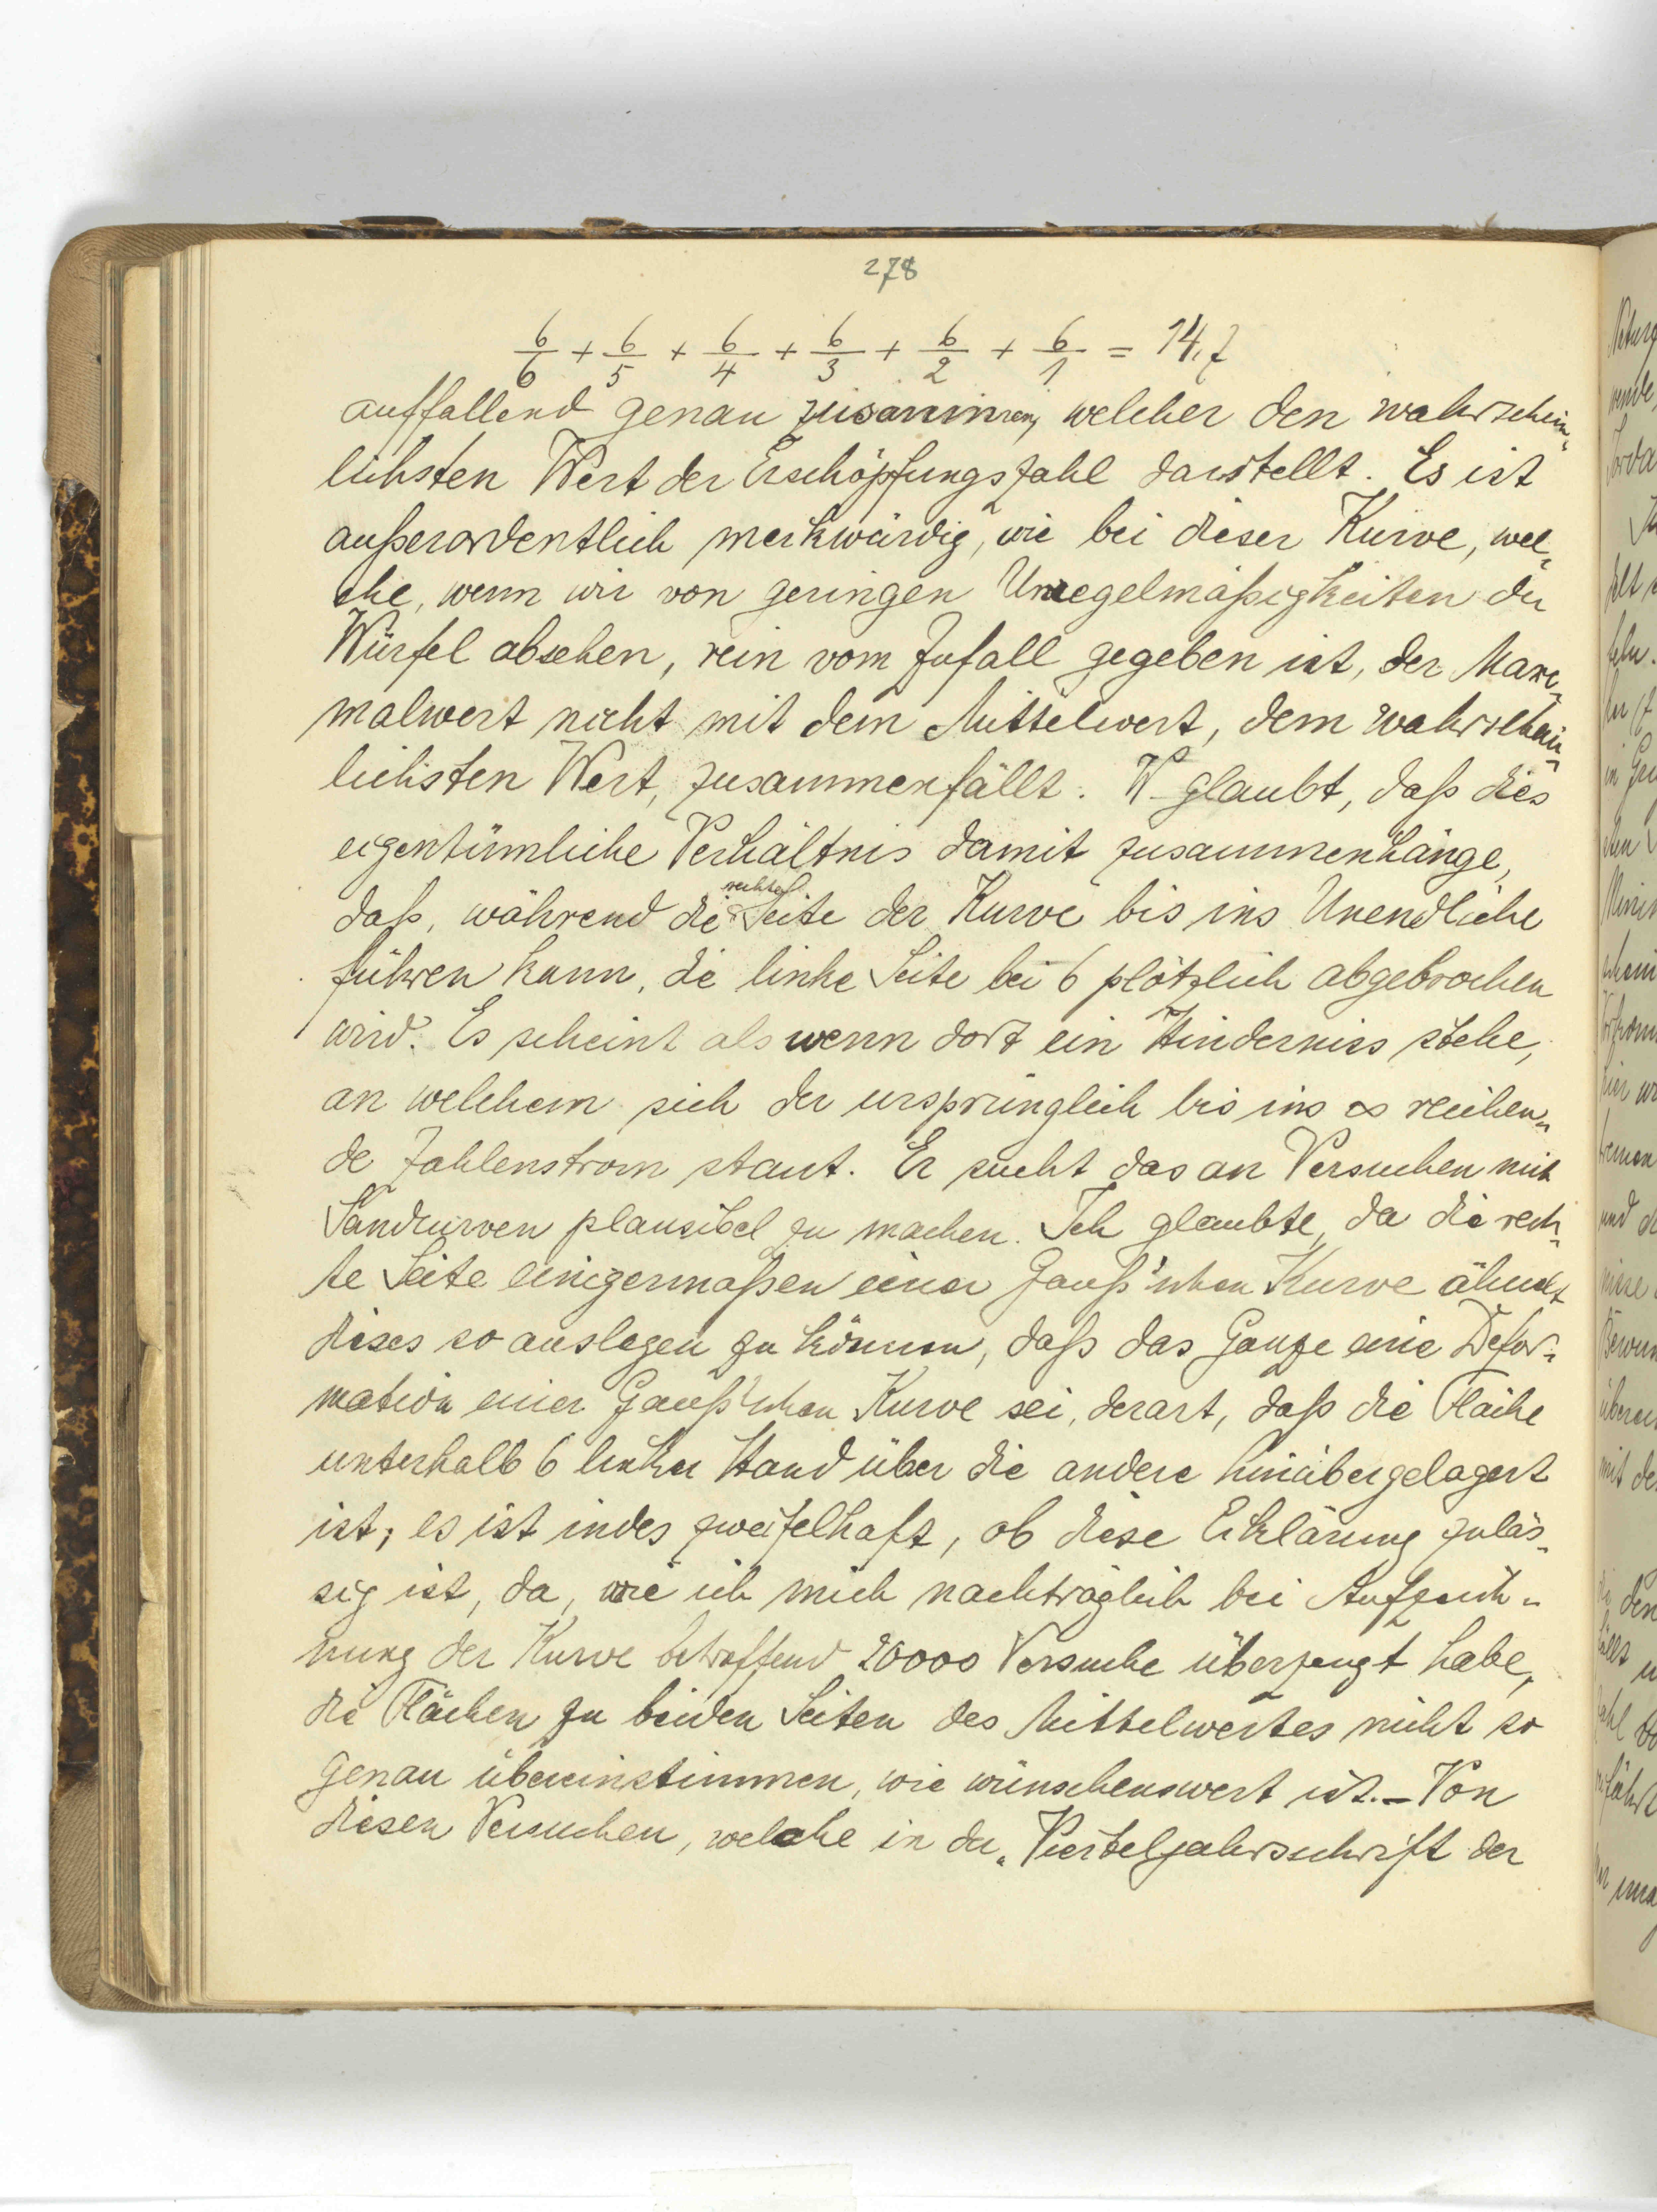 278
6/6 + 6/5 + 6/4 + 6/3 + 6/2 + 6/1 = 14,7
auffallend genau zusammen, welcher den wahrschein-
lichsten Wert der Erschöpfungszahl darstellt. Es ist
außerordentlich merkwürdig, wie bei dieser Kurve, wel-
che, wenn wir von geringen Unregelmäßigkeiten der
Würfel absehen, rein vom Zufall gegeben ist, der Maxi-
malwert nicht mit dem Mittelwert, dem wahrschein-
lichsten Wert, zusammenfällt. W. glaubt, daß dies
eigentümliche Verhältnis damit zusammenhänge,
daß, während die rechte Seite der Kurve bis ins Unendliche
führen kann, die linke Seite bei 6 plötzlich abgebrochen
wird. Es scheint als wenn dort ein Hinderniss stehe,
an welchem sich der ursprünglich bis ins ∞ reichen-
de Zahlenstrom staut. Er sucht das an Versuchen mit
Sandkurven plausibel zu machen. Ich glaubte, da die rech-
te Seite einigermaßen einer Gauß'schen Kurve ähnelt,
dieses so auslegen zu können, daß das Ganze eine Defor-
mation einer Gauß'schen Kurve sei, derart, daß die Fläche
unterhalb 6 linker Hand über die andere hinübergelagert
ist; es ist indes zweifelhaft, ob diese Erklärung zuläs-
sig ist, da, wie ich mich nachträglich bei Aufzeich-
nung der Kurve betreffend 20000 Versuche überzeugt habe,
die Flächen zu beiden Seiten des Mittelwertes nicht so
genau übereinstimmen, wie wünschenswert ist. – Von
diesen Versuchen, welche in der „Vierteljahrsschrift der